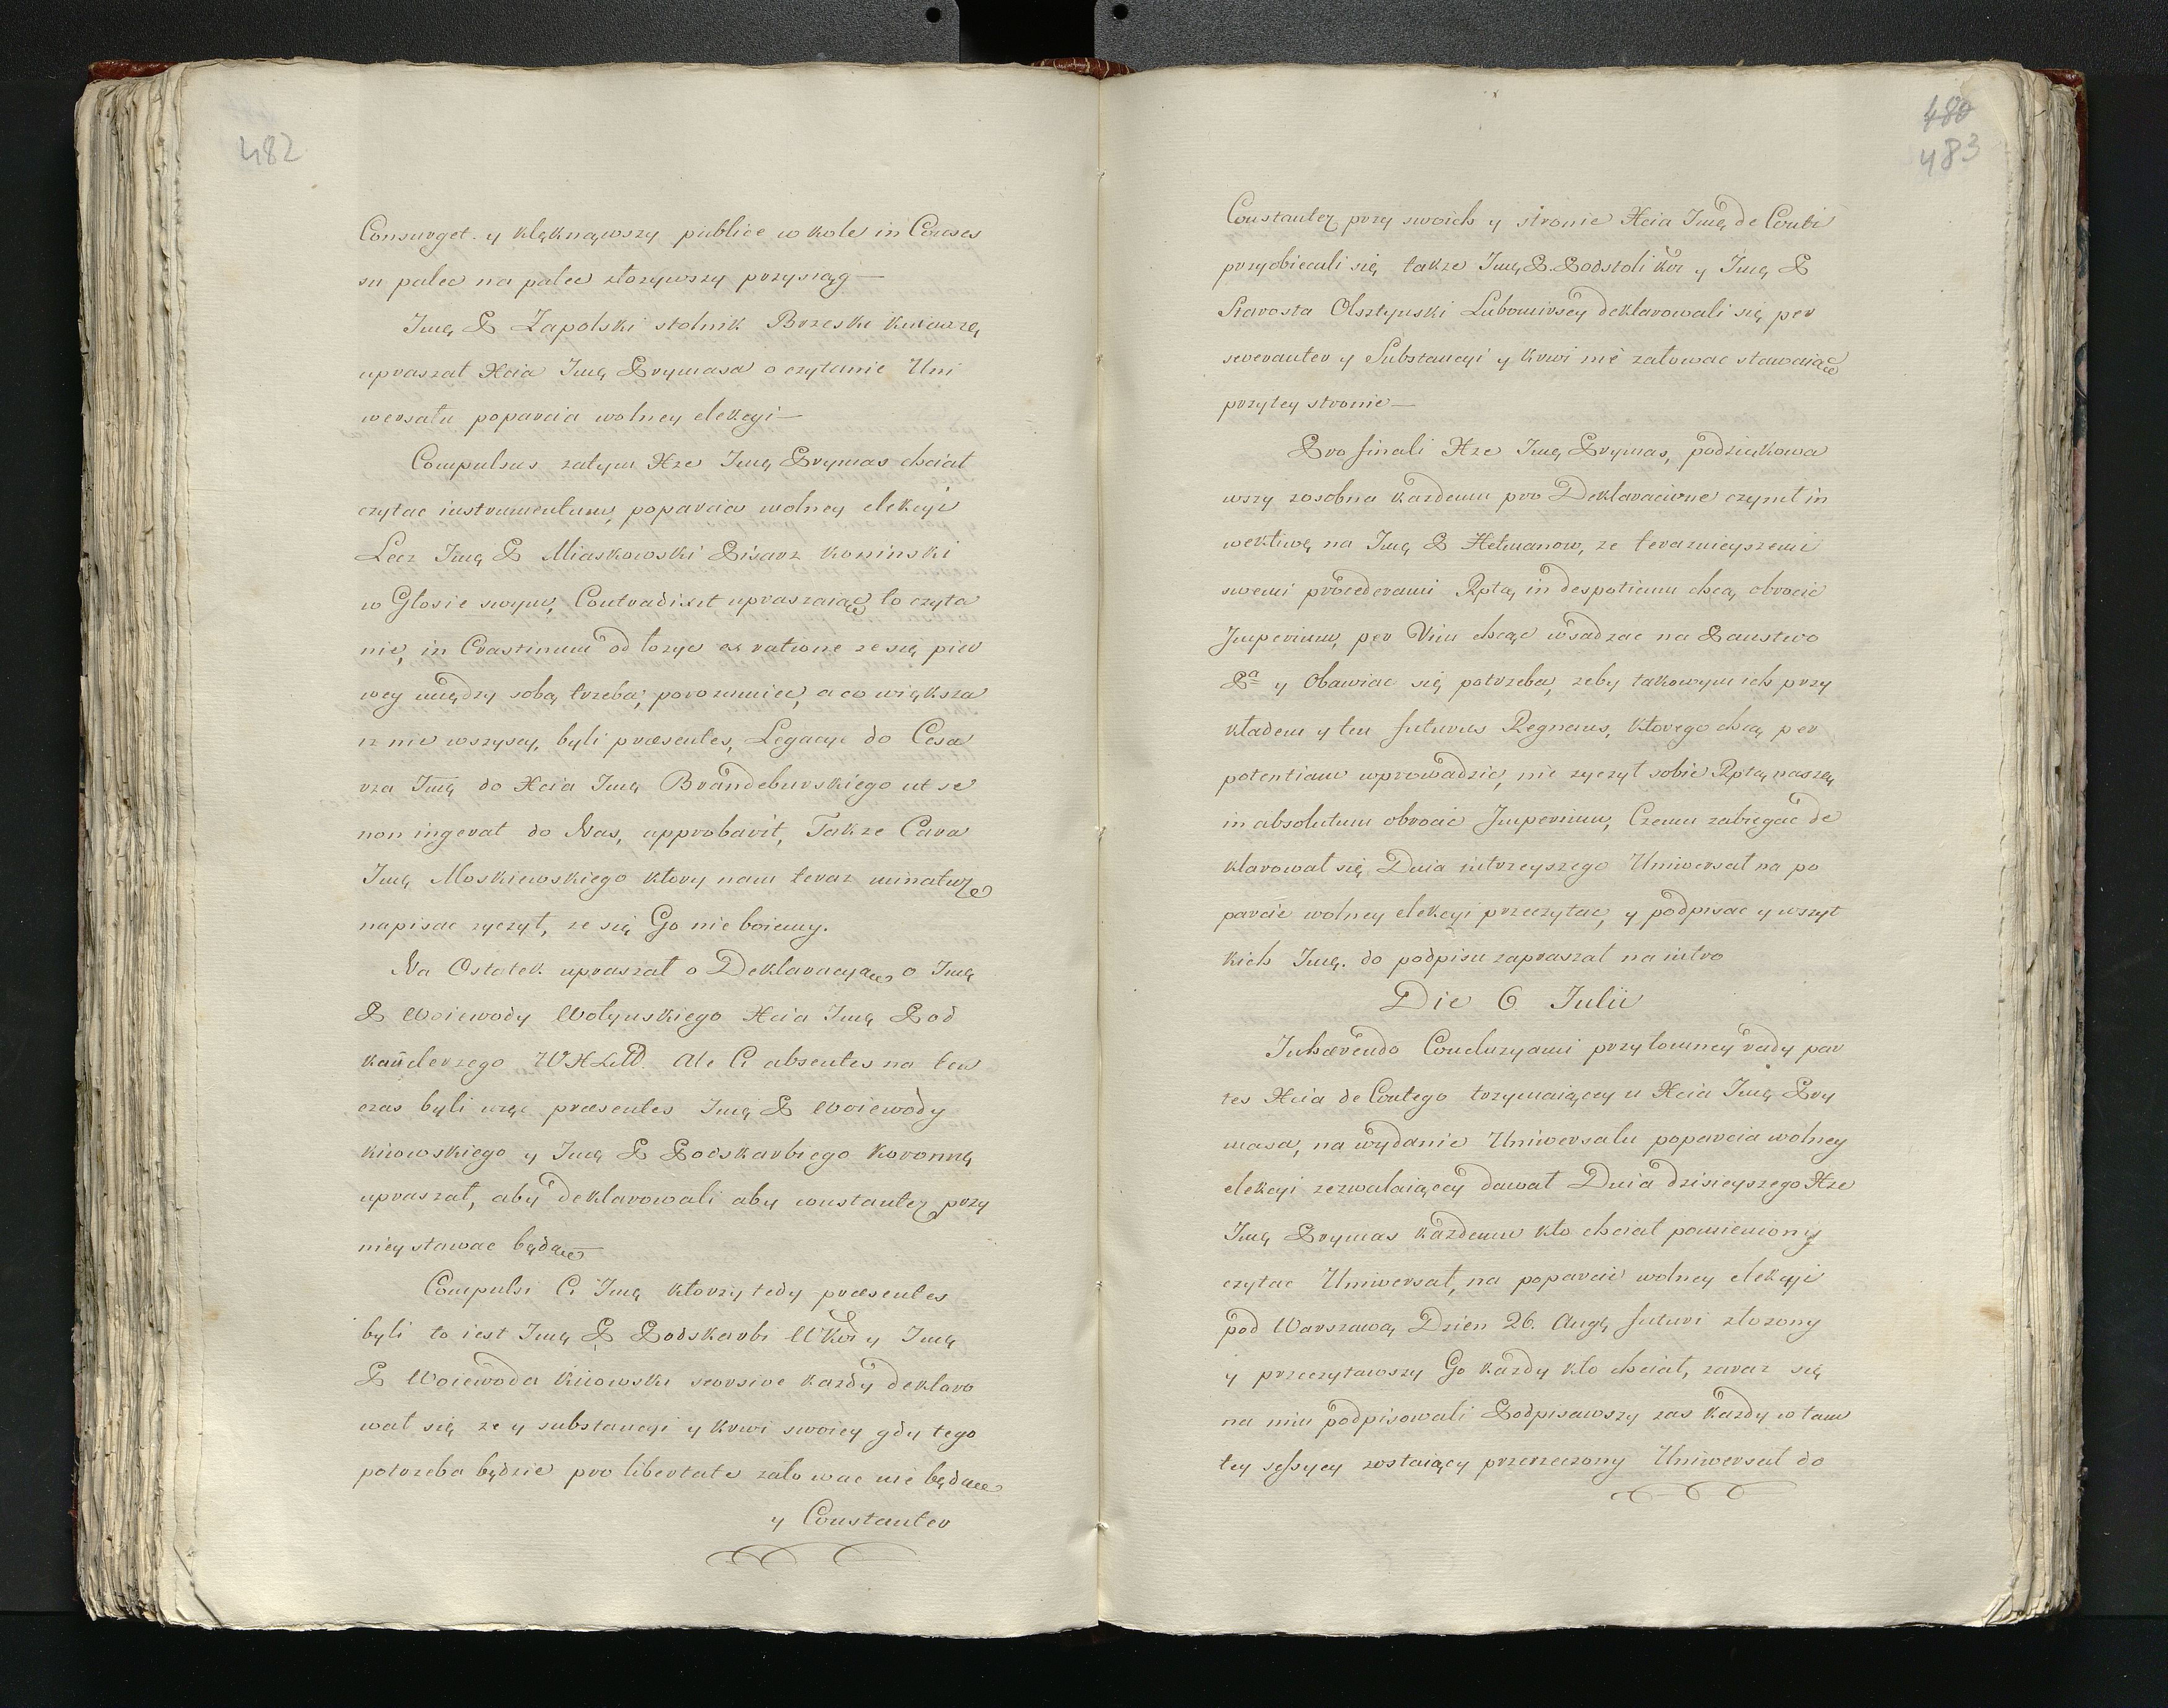 482
Consurget. y klęknąwszy publice w kole in Conses
su palec na palec złozywszy przysiąg —
Jmę P Zapolski stolnik Brzeski kuiawzę
upraszał Xcia Jmę Prymasa o czytanie Uni
wersału poparcia wolney elekcyi —
Compulsus zatym Xze Jmę Prymas chciał
czytac instrumentum, poparcia wolney elekcyi
Lecz Jmę P Miaskowski Pisarz koninski
w Głosie swym, Contradixit upraszaiąc to czyta
nie, in Crastinum od łozyc ex ratione ze się pier
wey między sobą trzeba, porozumiec, a co większa
iz nie wszyscy, byli præsentes, Legacye do Cesa
rza Jmę do Xcia Jmę Brandeburskiego ut se
non ingerat do Nas, approbavit, Takze Cara
Jmę Moskiewskiego ktory nam teraz minatur
napisac zyczył, ze się Go nie boiemy.
Na Ostatek upraszał o Deklaracyą o Jmę
P Woiewody Wołynskiego Xcia Jmę Pod
kanclerzego WXLitt. Ale Ci absentes na ten
czas byli więc præsentes Jmę P Woiewody
kiiowskiego y Jmę P Podskarbiego koronnę
upraszał, aby deklarowali aby constanter przy
niey stawac będąc
Compulsi Ci Jmę ktorzy tedy præsentes
byli to iest Jmę P Podskarbi WKor y Jmę
P Woiewoda kiiowski seorsive kazdy deklaro
wał się ze y substancyi y krwi swoiey gdy tego
potrzeba będzie pro libertate załowac nie będąc
y Constanter
480
483
Constanter przy swoich y stronie Xcia Jmę de Conti
przyobiecali się takze Jmę P. Podstoli Kor y Jmę P
Starosta Olsztynski Lubomirscy deklarowali się per
severanter y Substancyi y krwi nie załowac stawaiąc
przytey stronie —
Pro finali Xze Jmę Prymas, podziękowa
wszy zosobna kazdemu pro Deklaracione czynił in
wektiwę na Jmę P Hetmanow, ze terazmieyszemi
swemi procederami Rptą in despoticum chcą obrocic
Imperium, per Vim chcąc wsadzac na Panstwo
Pa y Obawiac się potrzeba, zeby takowym ich przy
kładem y ten futurus Regnans, ktorego chcą per
potentiam wprowadzic, nie zyczył sobie Rptą naszę
in absolutum obrocic Imperium, Czemu zabiegac de
klarował się Dnia iutrzeyszego Uniwersał na po
parcie wolney elekcyi przeczytac, y podpisac y wszyt
kich Jmę. do podpisu zapraszał na iutro
Die 6 Julii
Inhærendo Concluzyami przytomney rady par
tes Xcia de Contego trzymaiący u Xcia Jmę Pry
masa, na wydanie Uniwersału poparcia wolney
elekcyi zezwalaiący dawał Dnia dzisieyszego Xze
Jmę Prymas kazdemu kto chciał pomieniony
czytac Uniwersał, na poparcie wolney elekcyi
pod Warszawą Dzien 26. Augę futuri złozony
y przeczytawszy Go kazdy kto chciał, zaraz się
na nim podpisowali Podpisawszy zas kazdy w tam
tey sessyey zostaiący przerzeczony Uniwersał do